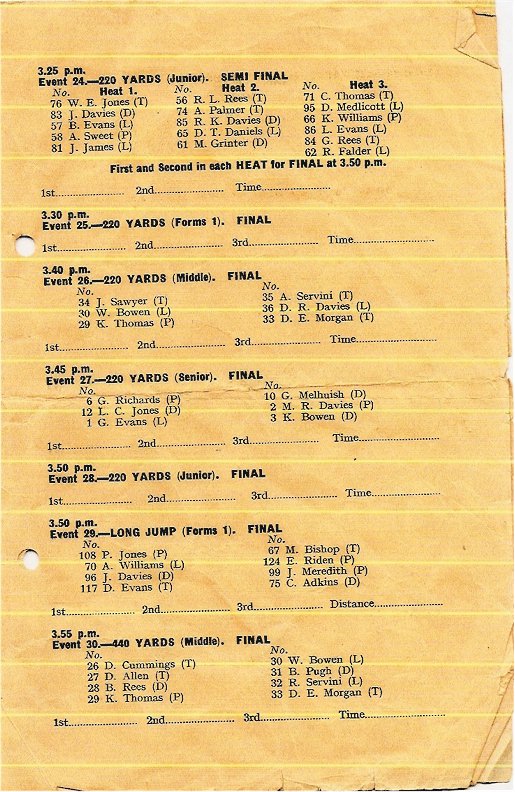 3.25 p.m.
Event 24.—220 YARDS (Junior). SEMI FINAL
No. Heat 1. No. Heat 2. No. Heat 3.
76 W. E. Jones (T) 56 R. L. Rees (T) 71 C. Thomas (T)
83 J. Davies (D) 74 A. Palmer (T) 95 D. Medlicott (L)
57 B. Evans (L) 85 R. K. Davies (D) 66 K. Williams (P)
58 A. Sweet (P) 65 D. T. Daniels (L) 86 L. Evans (L)
81 J. James (L) 61 M. Grinter (D) 84 G. Rees (T)
62 R. Falder (L)
First and Second in each HEAT for FINAL at 3.50 p.m.
1st................... 2nd........................ Time........................
3.30 p.m.
Event 25.—220 YARDS (Forms 1). FINAL
1st................... 2nd........................ 3rd........................ Time........................
3.40 p.m.
Event 26.—220 YARDS (Middle). FINAL
No. No.
34 J. Sawyer (T) 35 A. Servini (T)
30 W. Bowen (L) 36 D. R. Davies (L)
29 K. Thomas (P) 33 D. E. Morgan (T)
1st................... 2nd........................ 3rd........................ Time........................
3.45 p.m.
Event 27.—220 YARDS (Senior). FINAL
No. No.
6 G. Richards (P) 10 G. Melhuish (D)
12 L. C. Jones (D) 2 M. R. Davies (P)
1 G. Evans (L) 3 K. Bowen (D)
1st................... 2nd........................ 3rd........................ Time........................
3.50 p.m.
Event 28.—220 YARDS (Junior). FINAL
1st................... 2nd........................ 3rd........................ Time........................
3.50 p.m.
Event 29.—LONG JUMP (Forms 1). FINAL
No. No.
108 P. Jones (P) 67 M. Bishop (T)
70 A. Williams (L) 124 E. Riden (P)
96 J. Davies (D) 99 J. Meredith (P)
117 D. Evans (T) 75 C. Adkins (D)
1st................... 2nd........................ 3rd........................ Distance........................
3.55 p.m.
Event 30.—440 YARDS (Middle). FINAL
No. No.
26 D. Cummings (T) 30 W. Bowen (L)
27 D. Allen (T) 31 B. Pugh (D)
28 B. Rees (D) 32 R. Servini (L)
29 K. Thomas (P) 33 D. E. Morgan (T)
1st................... 2nd........................ 3rd........................ Time........................